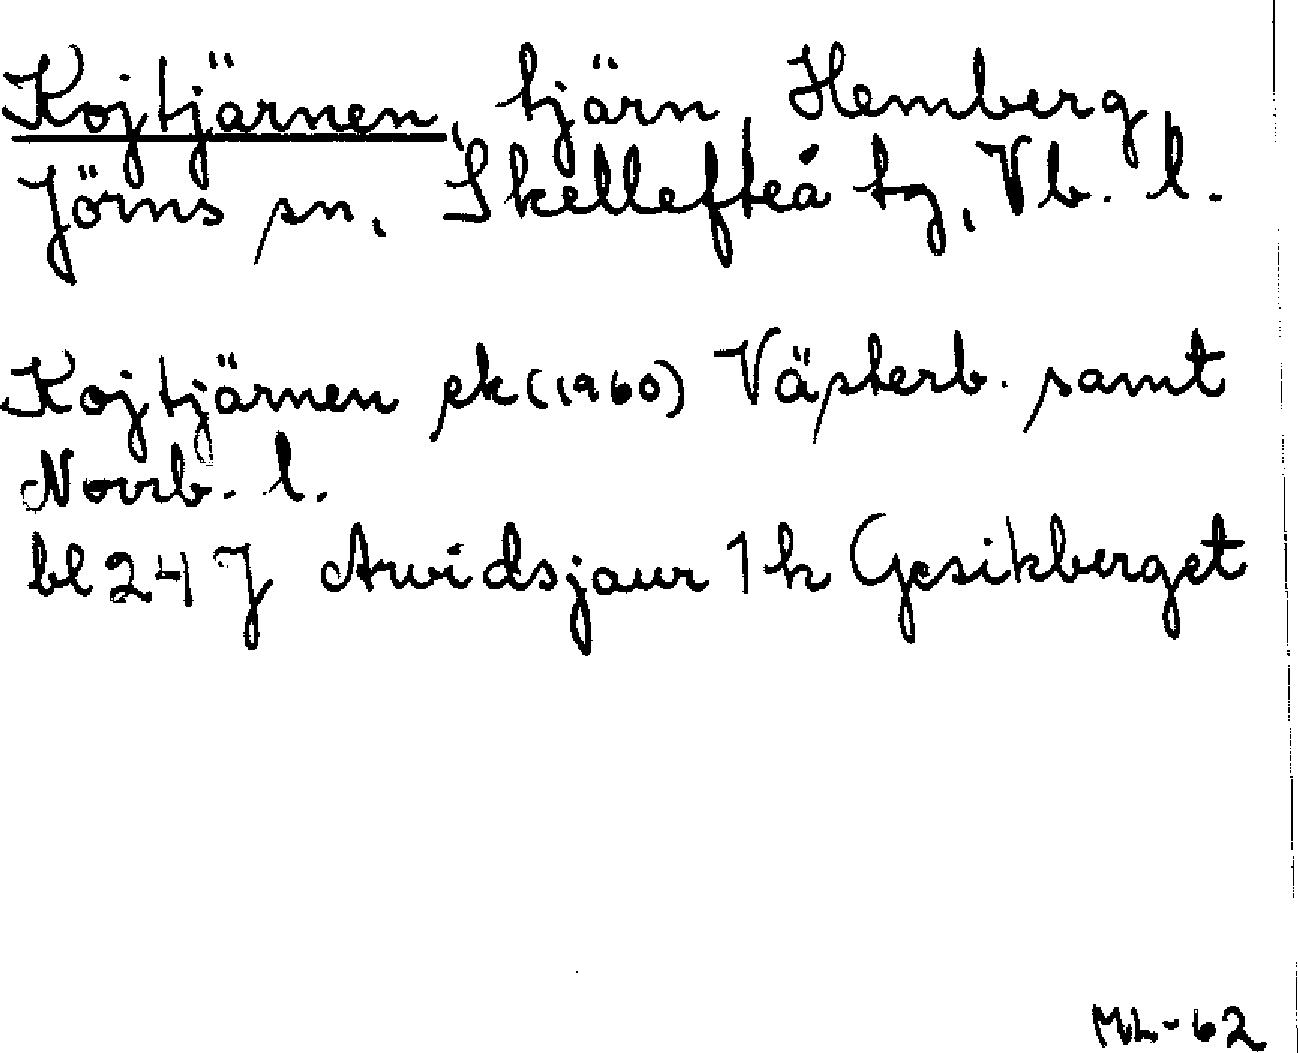 Kojtjärnen, tjärn Hemberg
Jörns sn, Skellefteå tg, Vb. l.
Kojtjärnen ek (1960) Västerb. samt
Norrb. l.
bl 24 J Arvidsjaur 1 h Gesikberget
ML-62